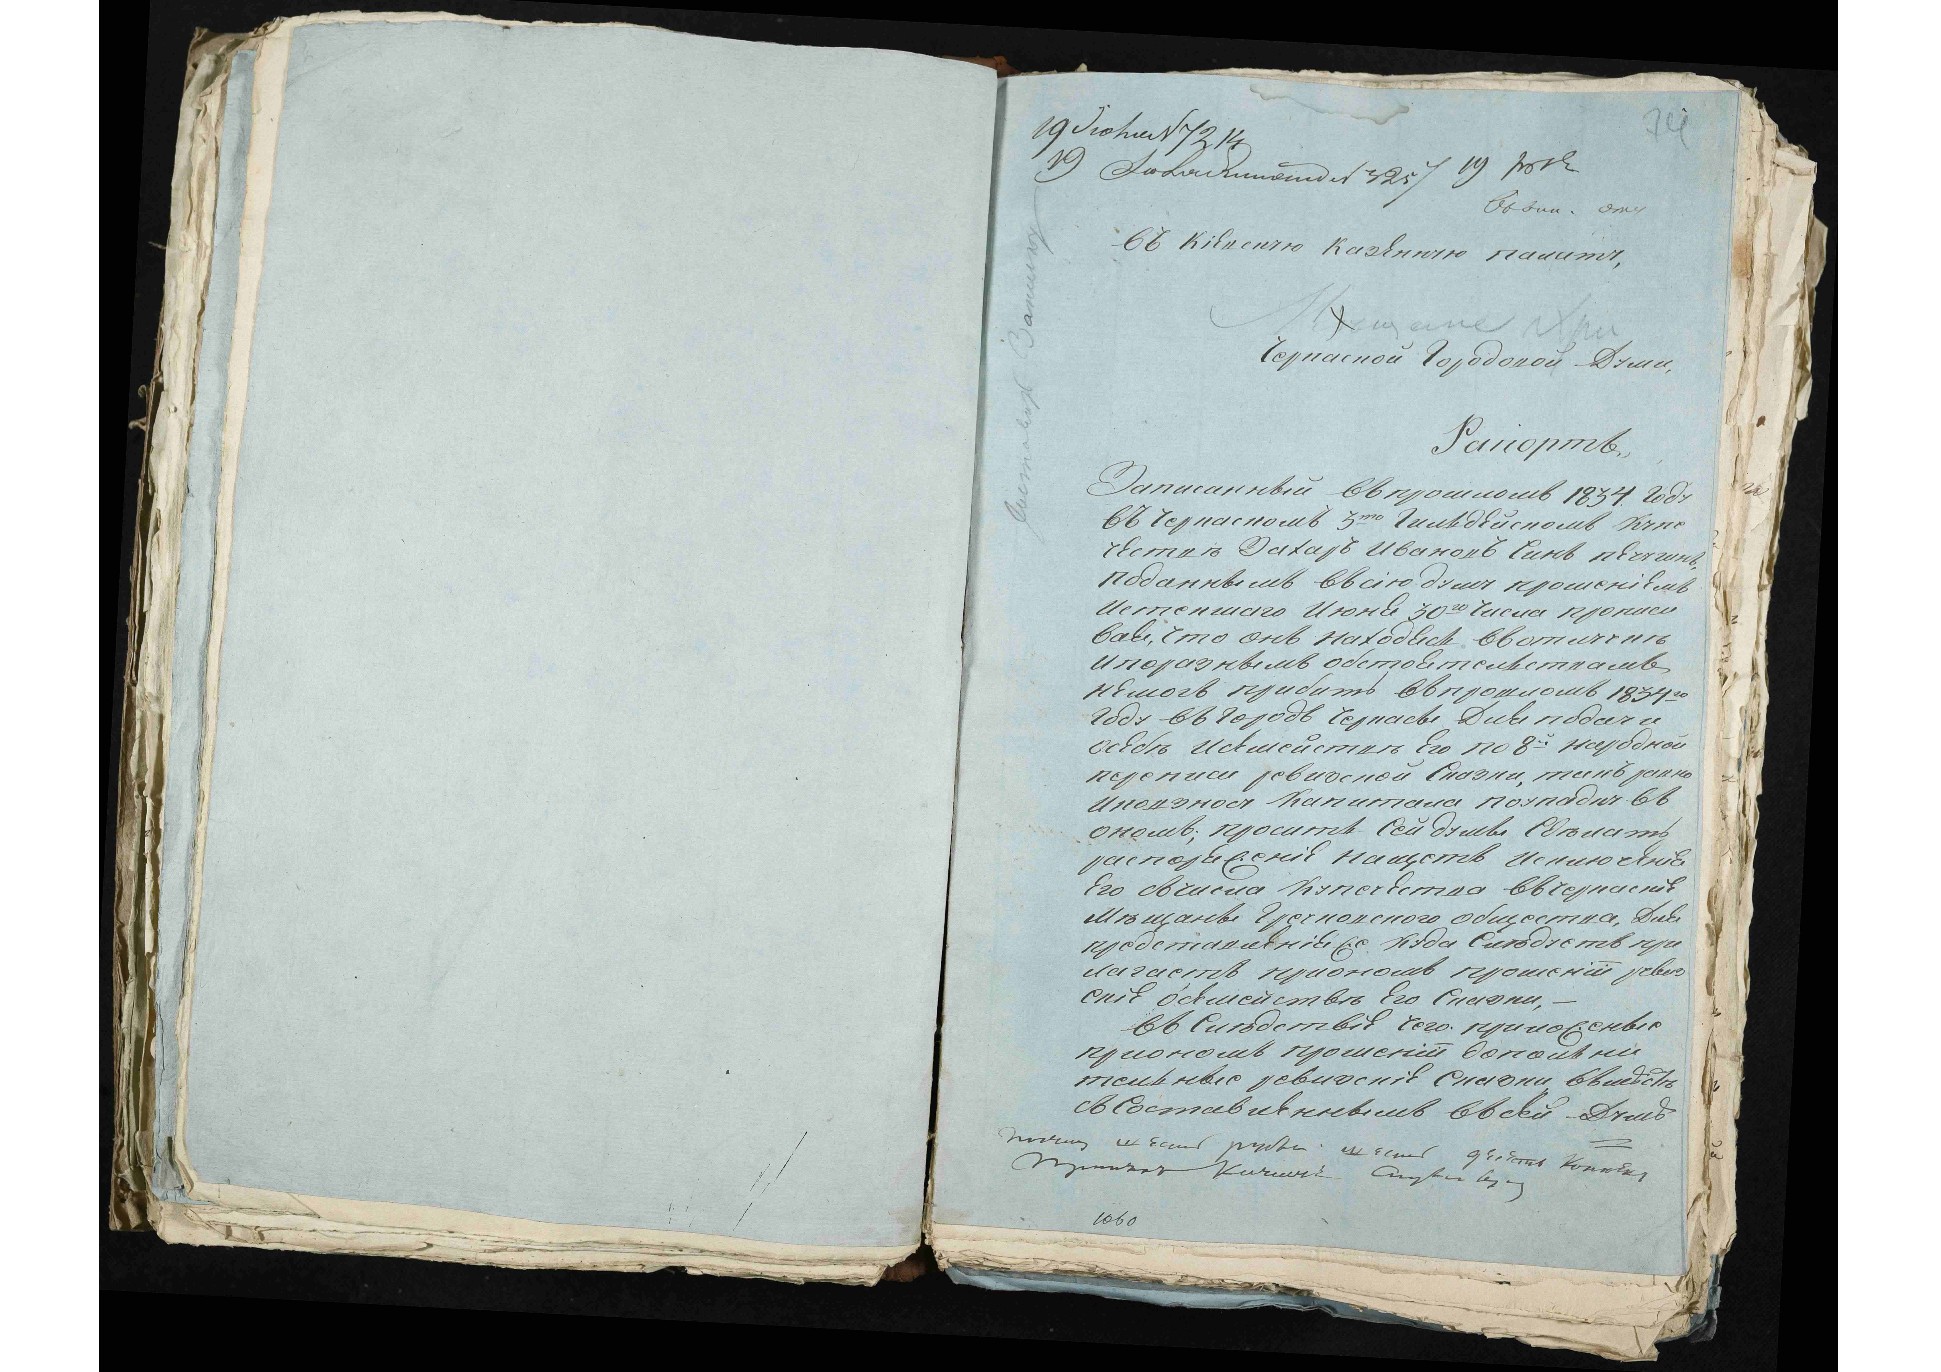 19 Июля N 7214
19 N 3257 19
74
Въ Кіевскую Казенную палату,
Мещане
Черкаской Городовой Думы,
Рапортъ.
Записанный въ прошломъ 1834 году
въ Черкаскомъ 3го Гильдейскомъ купе
чествѣ Захаръ Ивановъ Синъ
поданнымъ въ сію думу прошеніемъ
Истекшаго Июня 30го числа прописи
вая, что онъ находясь въ отлучкѣ
и по разнымъ обстоятельствамъ,
немогъ прибыть въ прошломъ 1834го
году въ городъ Черкасы для подачи
о себѣ и семействѣ его по 8й народной
переписи ревизской сказки, такъ равно
и по взносу капитала по упадку въ
ономъ; проситъ сей думы сдѣлать
распоряженіе на щетъ исключенія
его съ числа купечества въ черкаскіе
мѣщане общества, для
представленія же куда слѣдуетъ при
лагаетъ при ономъ прошеніи ревиз
скіе о семействѣ его сказки, —
Въ слѣдствіе чего приложенные
при ономъ прошеніи дополни
тельные ревизскіе сказки, вместѣ
съ составленнымъ въ сей Думѣ
шесть рублей шесть десятъ копѣекъ
1060